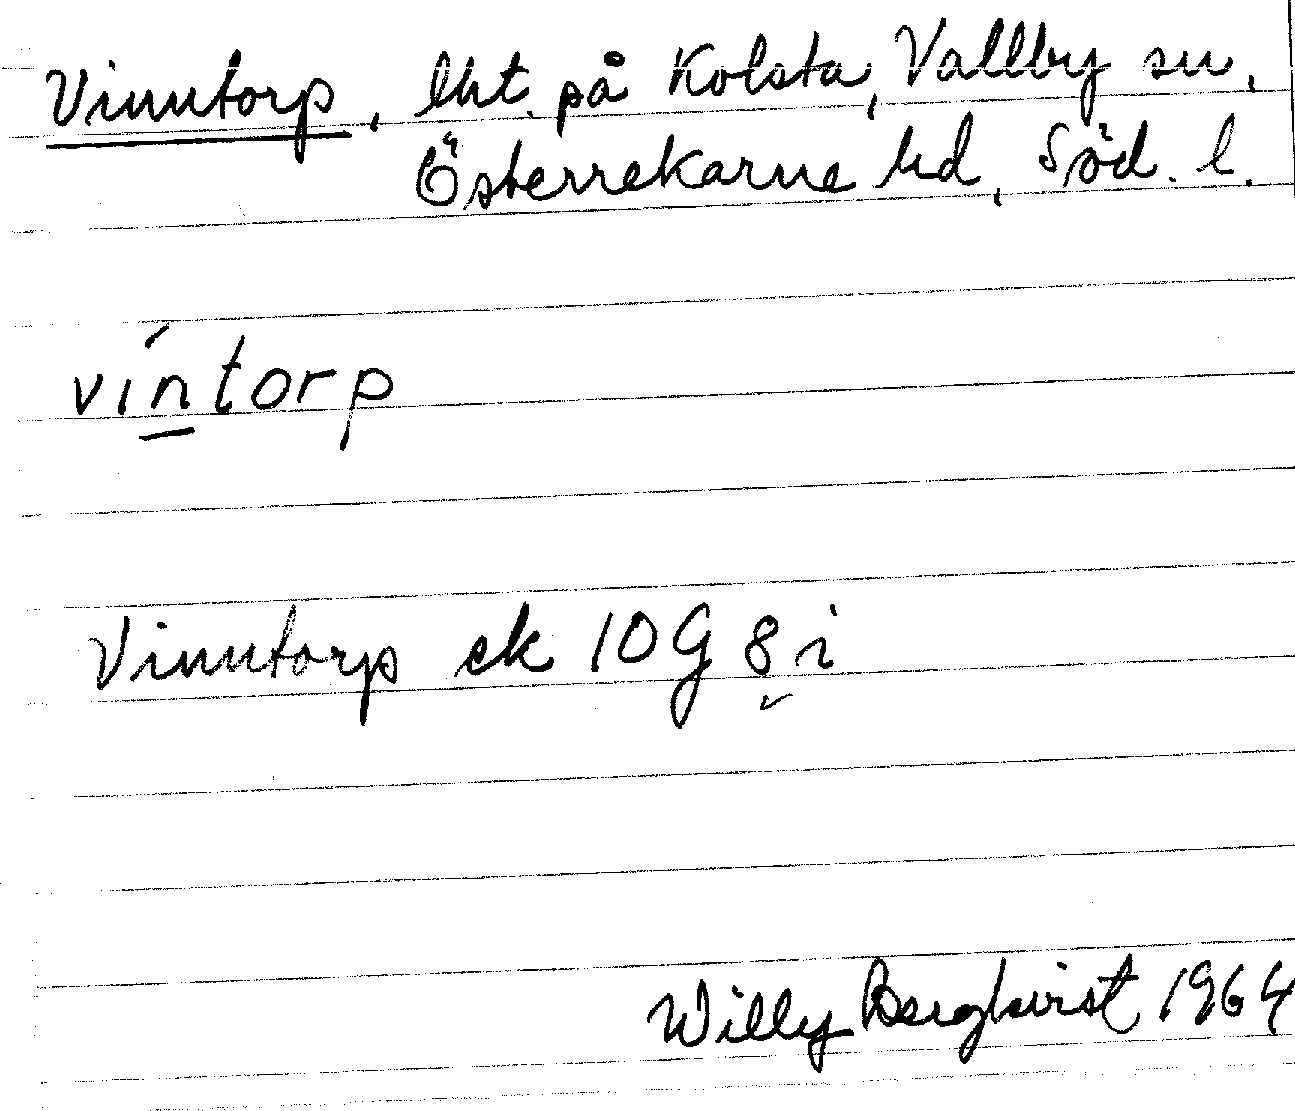 Vinntorp, lht. på Kolsta, Vallby sn,
Österrekarne hd, Söd. l.
víntorp
Vinntorp ek 10G 8 i
Willy Bergkvist 1964